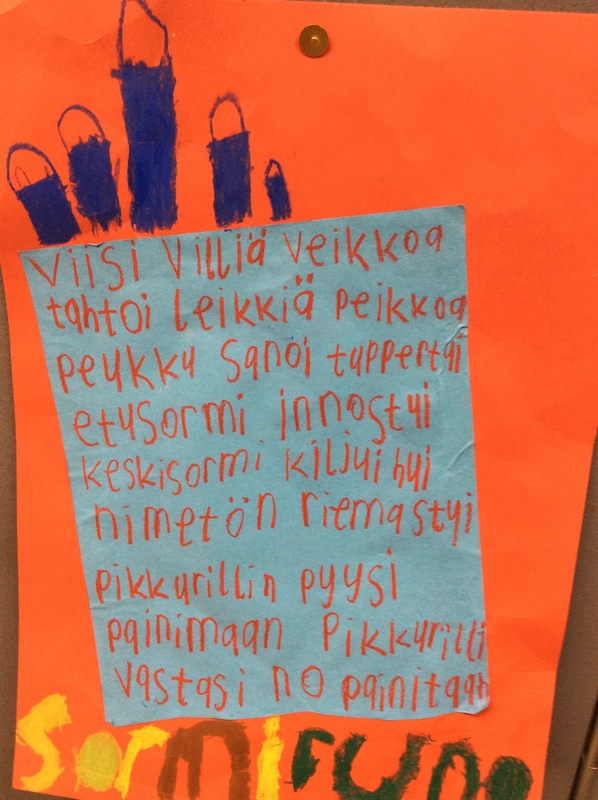 viisi villiä veikkoa
tahtoi leikkiä peikkoa
peukku sanoi tuppertui
etusormi innostui
keskisormi kiljui hui
nimetön riemastyi
pikkurillin pyysi
painimaan pikkurilli
vastasi no painitaan
sormiruno